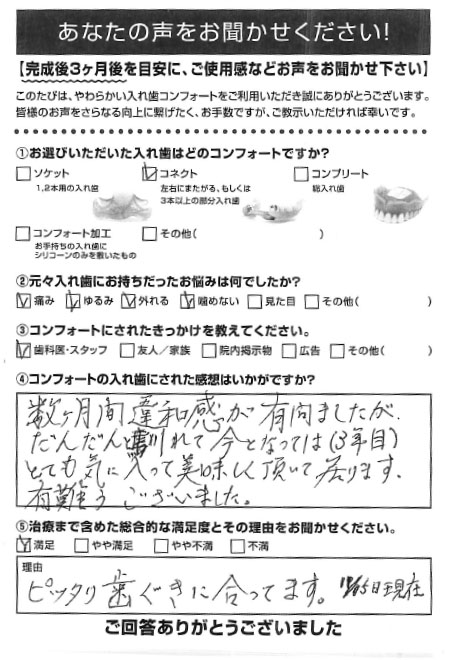 あなたの声をお聞かせください!
【完成後3ヶ月後を目安に、ご使用感などお声をお聞かせ下さい】
このたびは、やわらかい入れ歯コンフォートをご利用いただき誠にありがとうございます。
皆様のお声をさらなる向上に繋げたく、お手数ですが、ご教示いただければ幸いです。
①お選びいただいた入れ歯はどのコンフォートですか?
ソケット
1,2本用の入れ歯
コネクト
左右にまたがる、もしくは
3本以上の部分入れ歯
コンプリート
総入れ歯
コンフォート加工
お手持ちの入れ歯に
シリコーンのみを敷いたもの
その他( )
②元々入れ歯にお持ちだったお悩みは何でしたか?
痛み ゆるみ 外れる 噛めない 見た目 その他( )
③コンフォートにされたきっかけを教えてください。
歯科医・スタッフ 友人/家族 院内掲示物 広告 その他( )
④コンフォートの入れ歯にされた感想はいかがですか?
数ヶ月間違和感が有向ましたが、
だんだんと馴れて今となっては(3年目)
とても気に入って美味しく頂いて居ります、
有難うございました。
⑤治療まで含めた総合的な満足度とその理由をお聞かせください。
満足 やや満足 やや不満 不満
理由
ピッタリ歯ぐきに合ってます。 日現在
ご回答ありがとうございました